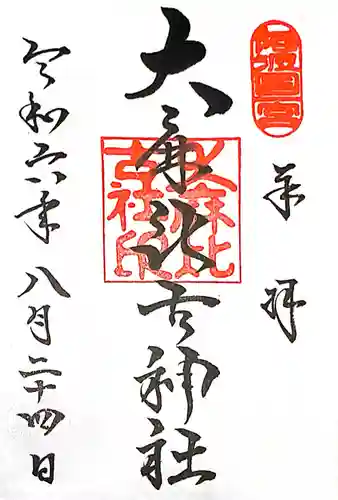 奉拝
大麻比古神社
大麻比古社印
令和六年八月二十四日